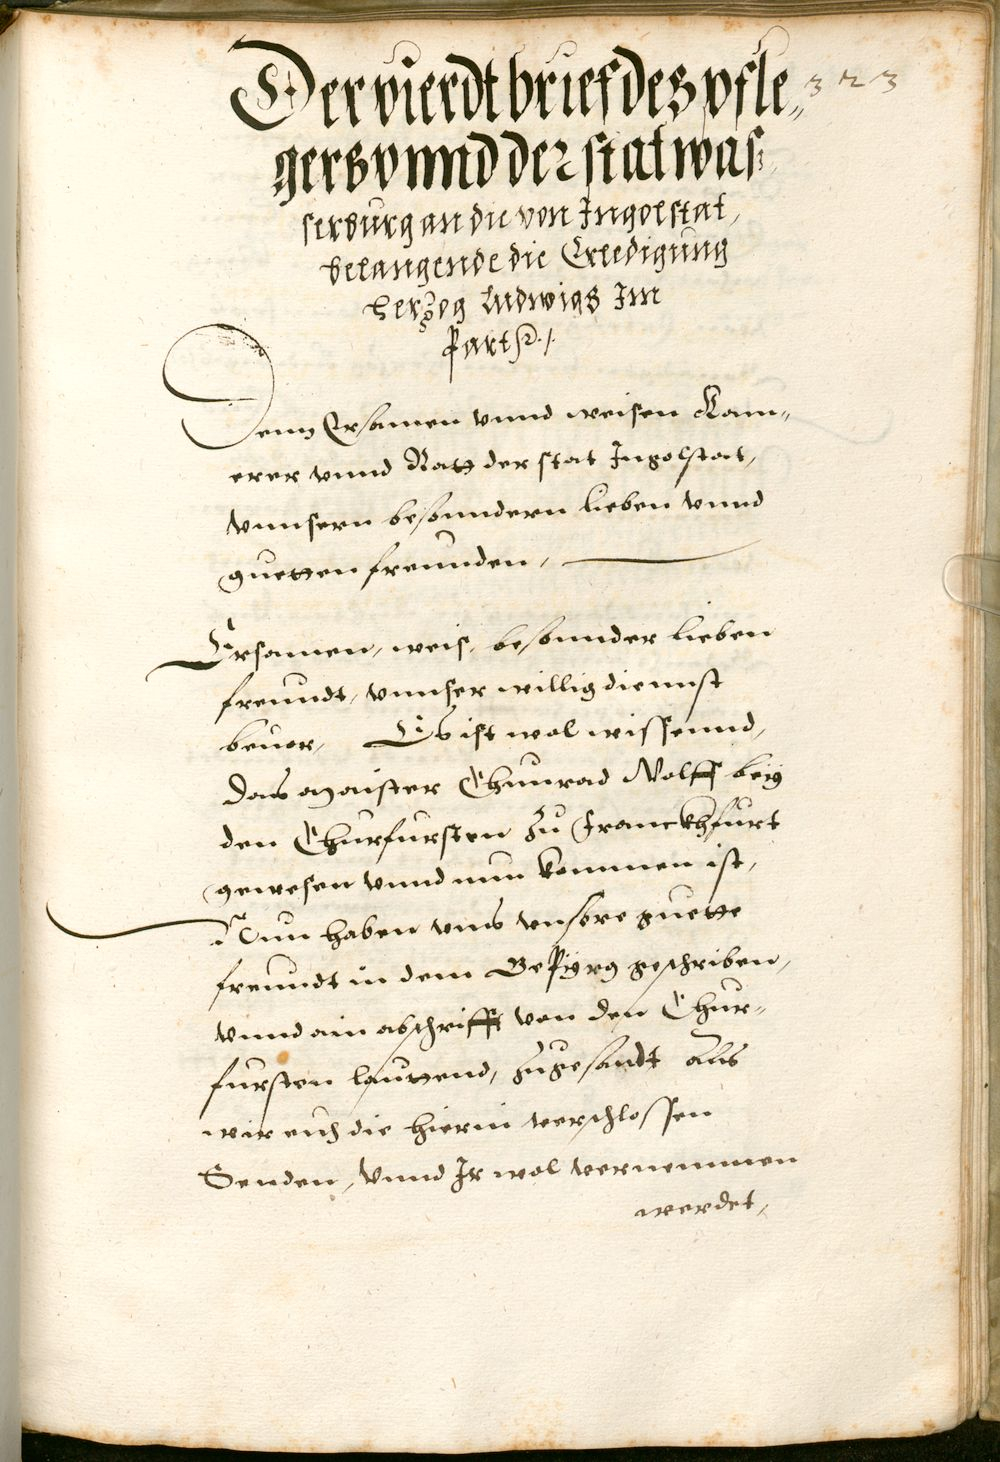 323
Der vierdt brief des pfle„
gers vnnd der stat was„
serburg an die von Ingolstat,
belangende die Erledigung
hertzog Ludwigs Im
Part
Denn Ersamen vnnd weisen Cam„
erer vnnd Ratt der stat Ingolstat,
vnnsern besonndern lieben vnnd
guetten freunden,
Ersamen, weis, besonnder lieben
freundt, vnnser willig diennst
beuor, Es ist wol wissennd,
das maister Chunrad Wolff bey
den Churfursten zu Franckhfurt
gewesen vnnd nun kommen ist,
Nun haben vnns vnsere guette
freundt in dem Gepyrg geschriben,
vnnd ain abschrifft von den Chur„
fursten lauttend, zugesandt als
wir euch die hierin verschlossen
Senden, vnnd Ir wol vernemmen
werdet,